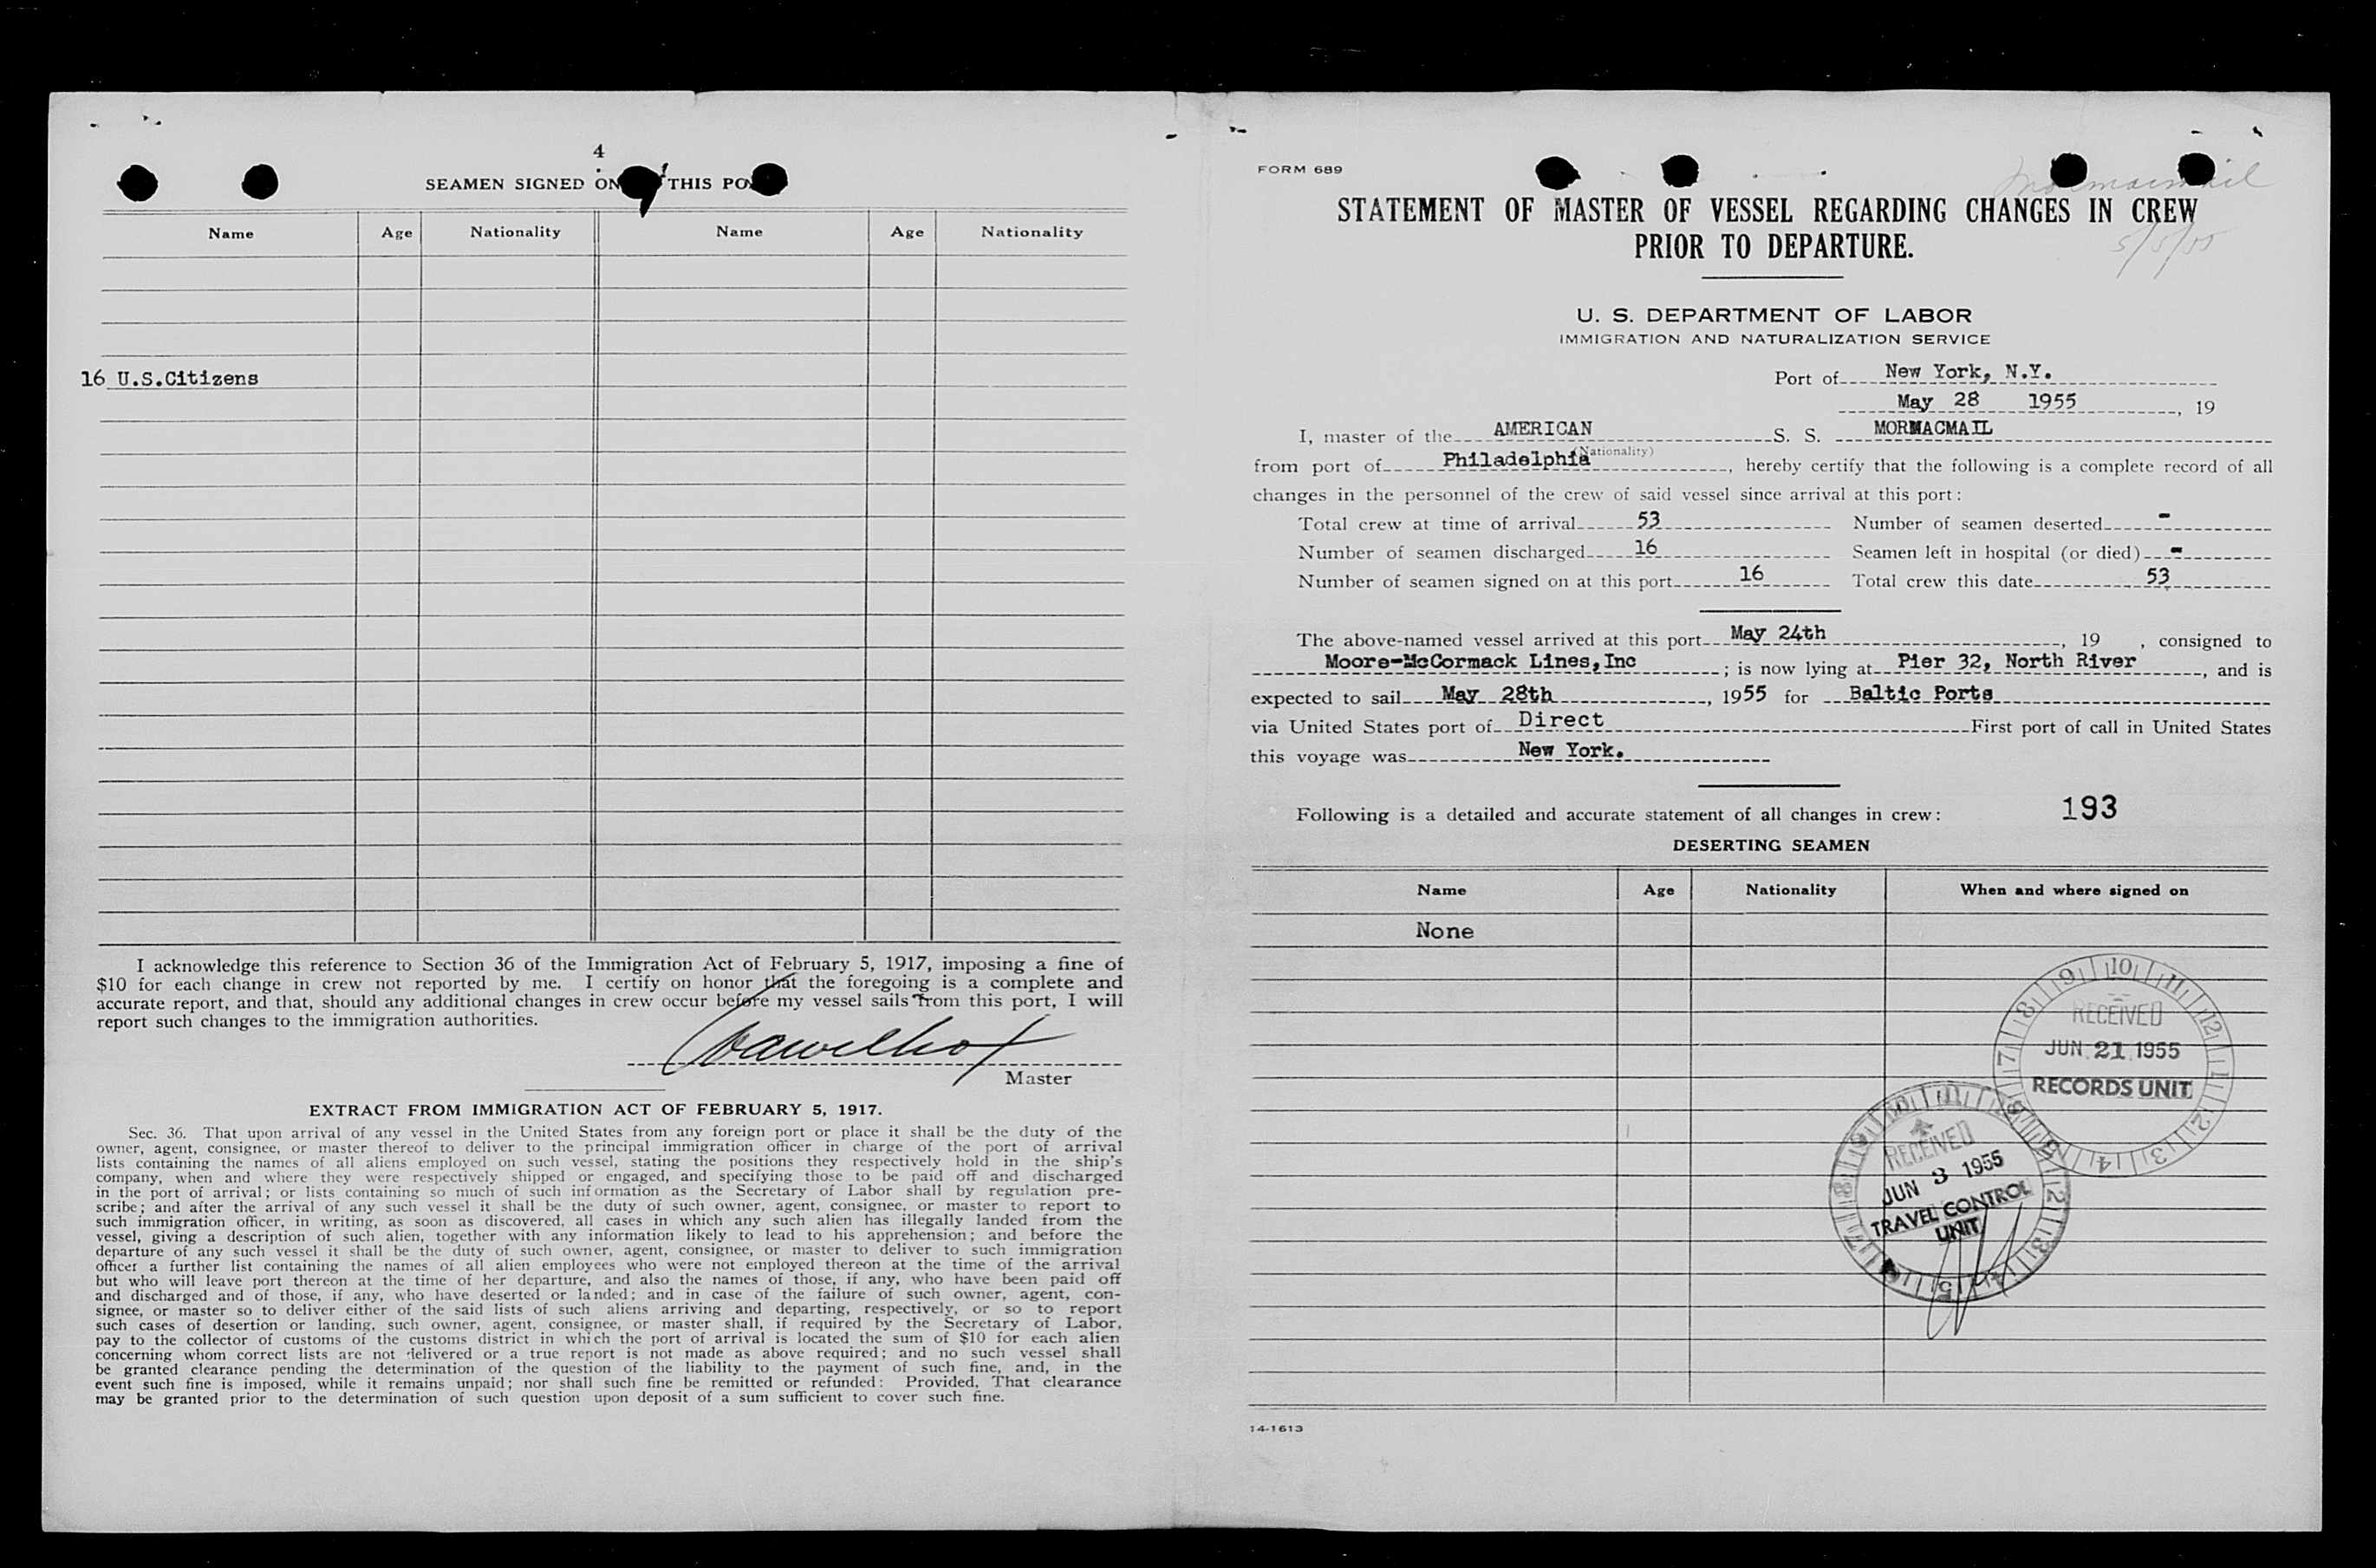 4
SEAMEN SIGNED ON THIS PO
Name Age Nationality Name Age Nationality
16 U.S.Citizens
I acknowledge this reference to Section 36 of the Immigration Act of February 5, 1917, imposing a fine of
$10 for each change in crew not reported by me. I certify on honor that the foregoing is a complete and
accurate report, and that, should any additional changes in crew occur before my vessel sails from this port, I will
report such changes to the immigration authorities.
Master
EXTRACT FROM IMMIGRATION ACT OF FEBRUARY 5, 1917.
Sec. 36. That upon arrival of any vessel in the United States from any foreign port or place it shall be the duty of the
owner, agent, consignee, or master thereof to deliver to the principal immigration officer in charge of the port of arrival
lists containing the names of all aliens employed on such vessel, stating the positions they respectively hold in the ship's
company, when and where they were respectively shipped or engaged, and specifying those to be paid off and discharged
in the port of arrival; or lists containing so much of such information as the Secretary of Labor shall by regulation pre-
scribe; and after the arrival of any such vessel it shall be the duty of such owner, agent, consignee, or master to report to
such immigration officer, in writing, as soon as discovered, all cases in which any such alien has illegally landed from the
vessel, giving a description of such alien, together with any information likely to lead to his apprehension; and before the
departure of any such vessel it shall be the duty of such owner, agent, consignee, or master to deliver to such immigration
officer a further list containing the names of all alien employees who were not employed thereon at the time of the arrival
but who will leave port thereon at the time of her departure, and also the names of those, if any, who have been paid off
and discharged and of those, if any, who have deserted or landed; and in case of the failure of such owner, agent, con-
signee, or master so to deliver either of the said lists of such aliens arriving and departing, respectively, or so to report
such cases of desertion or landing, such owner, agent, consignee, or master shall, if required by the Secretary of Labor,
pay to the collector of customs of the customs district in which the port of arrival is located the sum of $10 for each alien
concerning whom correct lists are not delivered or a true report is not made as above required; and no such vessel shall
be granted clearance pending the determination of the question of the liability to the payment of such fine, and, in the
event such fine is imposed, while it remains unpaid; nor shall such fine be remitted or refunded: Provided, That clearance
may be granted prior to the determination of such question upon deposit of a sum sufficient to cover such fine.
FORM 689
Mormacmail
STATEMENT OF MASTER OF VESSEL REGARDING CHANGES IN CREW
PRIOR TO DEPARTURE.
U. S. DEPARTMENT OF LABOR
IMMIGRATION AND NATURALIZATION SERVICE
Port of New York, N.Y.
May 28 1955, 19
I, master of the AMERICAN S. S. MORMACMAIL
(Nationality)
from port of Philadelphia, hereby certify that the following is a complete record of all
changes in the personnel of the crew of said vessel since arrival at this port:
Total crew at time of arrival 53 Number of seamen deserted -
Number of seamen discharged 16 Seamen left in hospital (or died) -
Number of seamen signed on at this port 16 Total crew this date 53
The above-named vessel arrived at this port May 24th, 19 , consigned to
Moore-McCormack Lines,Inc; is now lying at Pier 32, North River, and is
expected to sail May 28th, 1955 for Baltic Ports
via United States port of Direct First port of call in United States
this voyage was New York.
Following is a detailed and accurate statement of all changes in crew: 193
DESERTING SEAMEN
Name Age Nationality When and where signed on
None
RECEIVED
JUN 21 1955
RECORDS UNIT
RECEIVED
JUN 3 1955
TRAVEL CONTROL
UNIT
14-1613